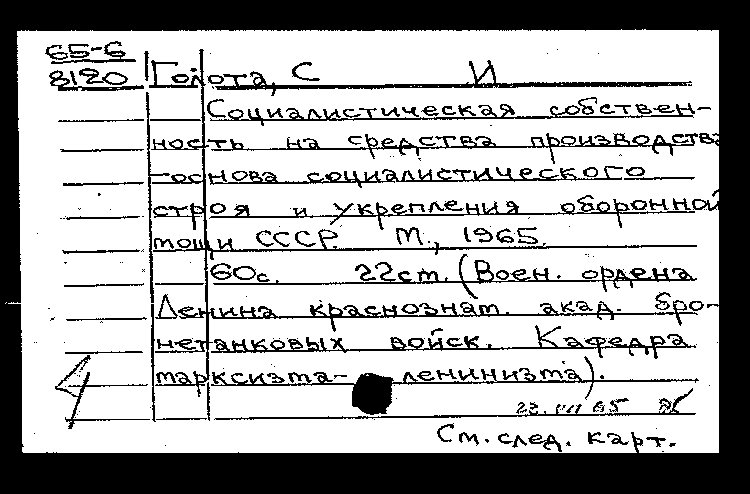 65-6
8120 Голота, С И
Социалистическая собствен-
ность на средства производства
-основа социалистического
строя и укрепления оборонной
мощи СССР. М., 1965.
60с. 22см. (Воен. ордена
Ленина краснознам. акад. бро-
нетанковых войск. Кафедра
марксизма-ленинизма).
22.VII 65
См. след. карт.